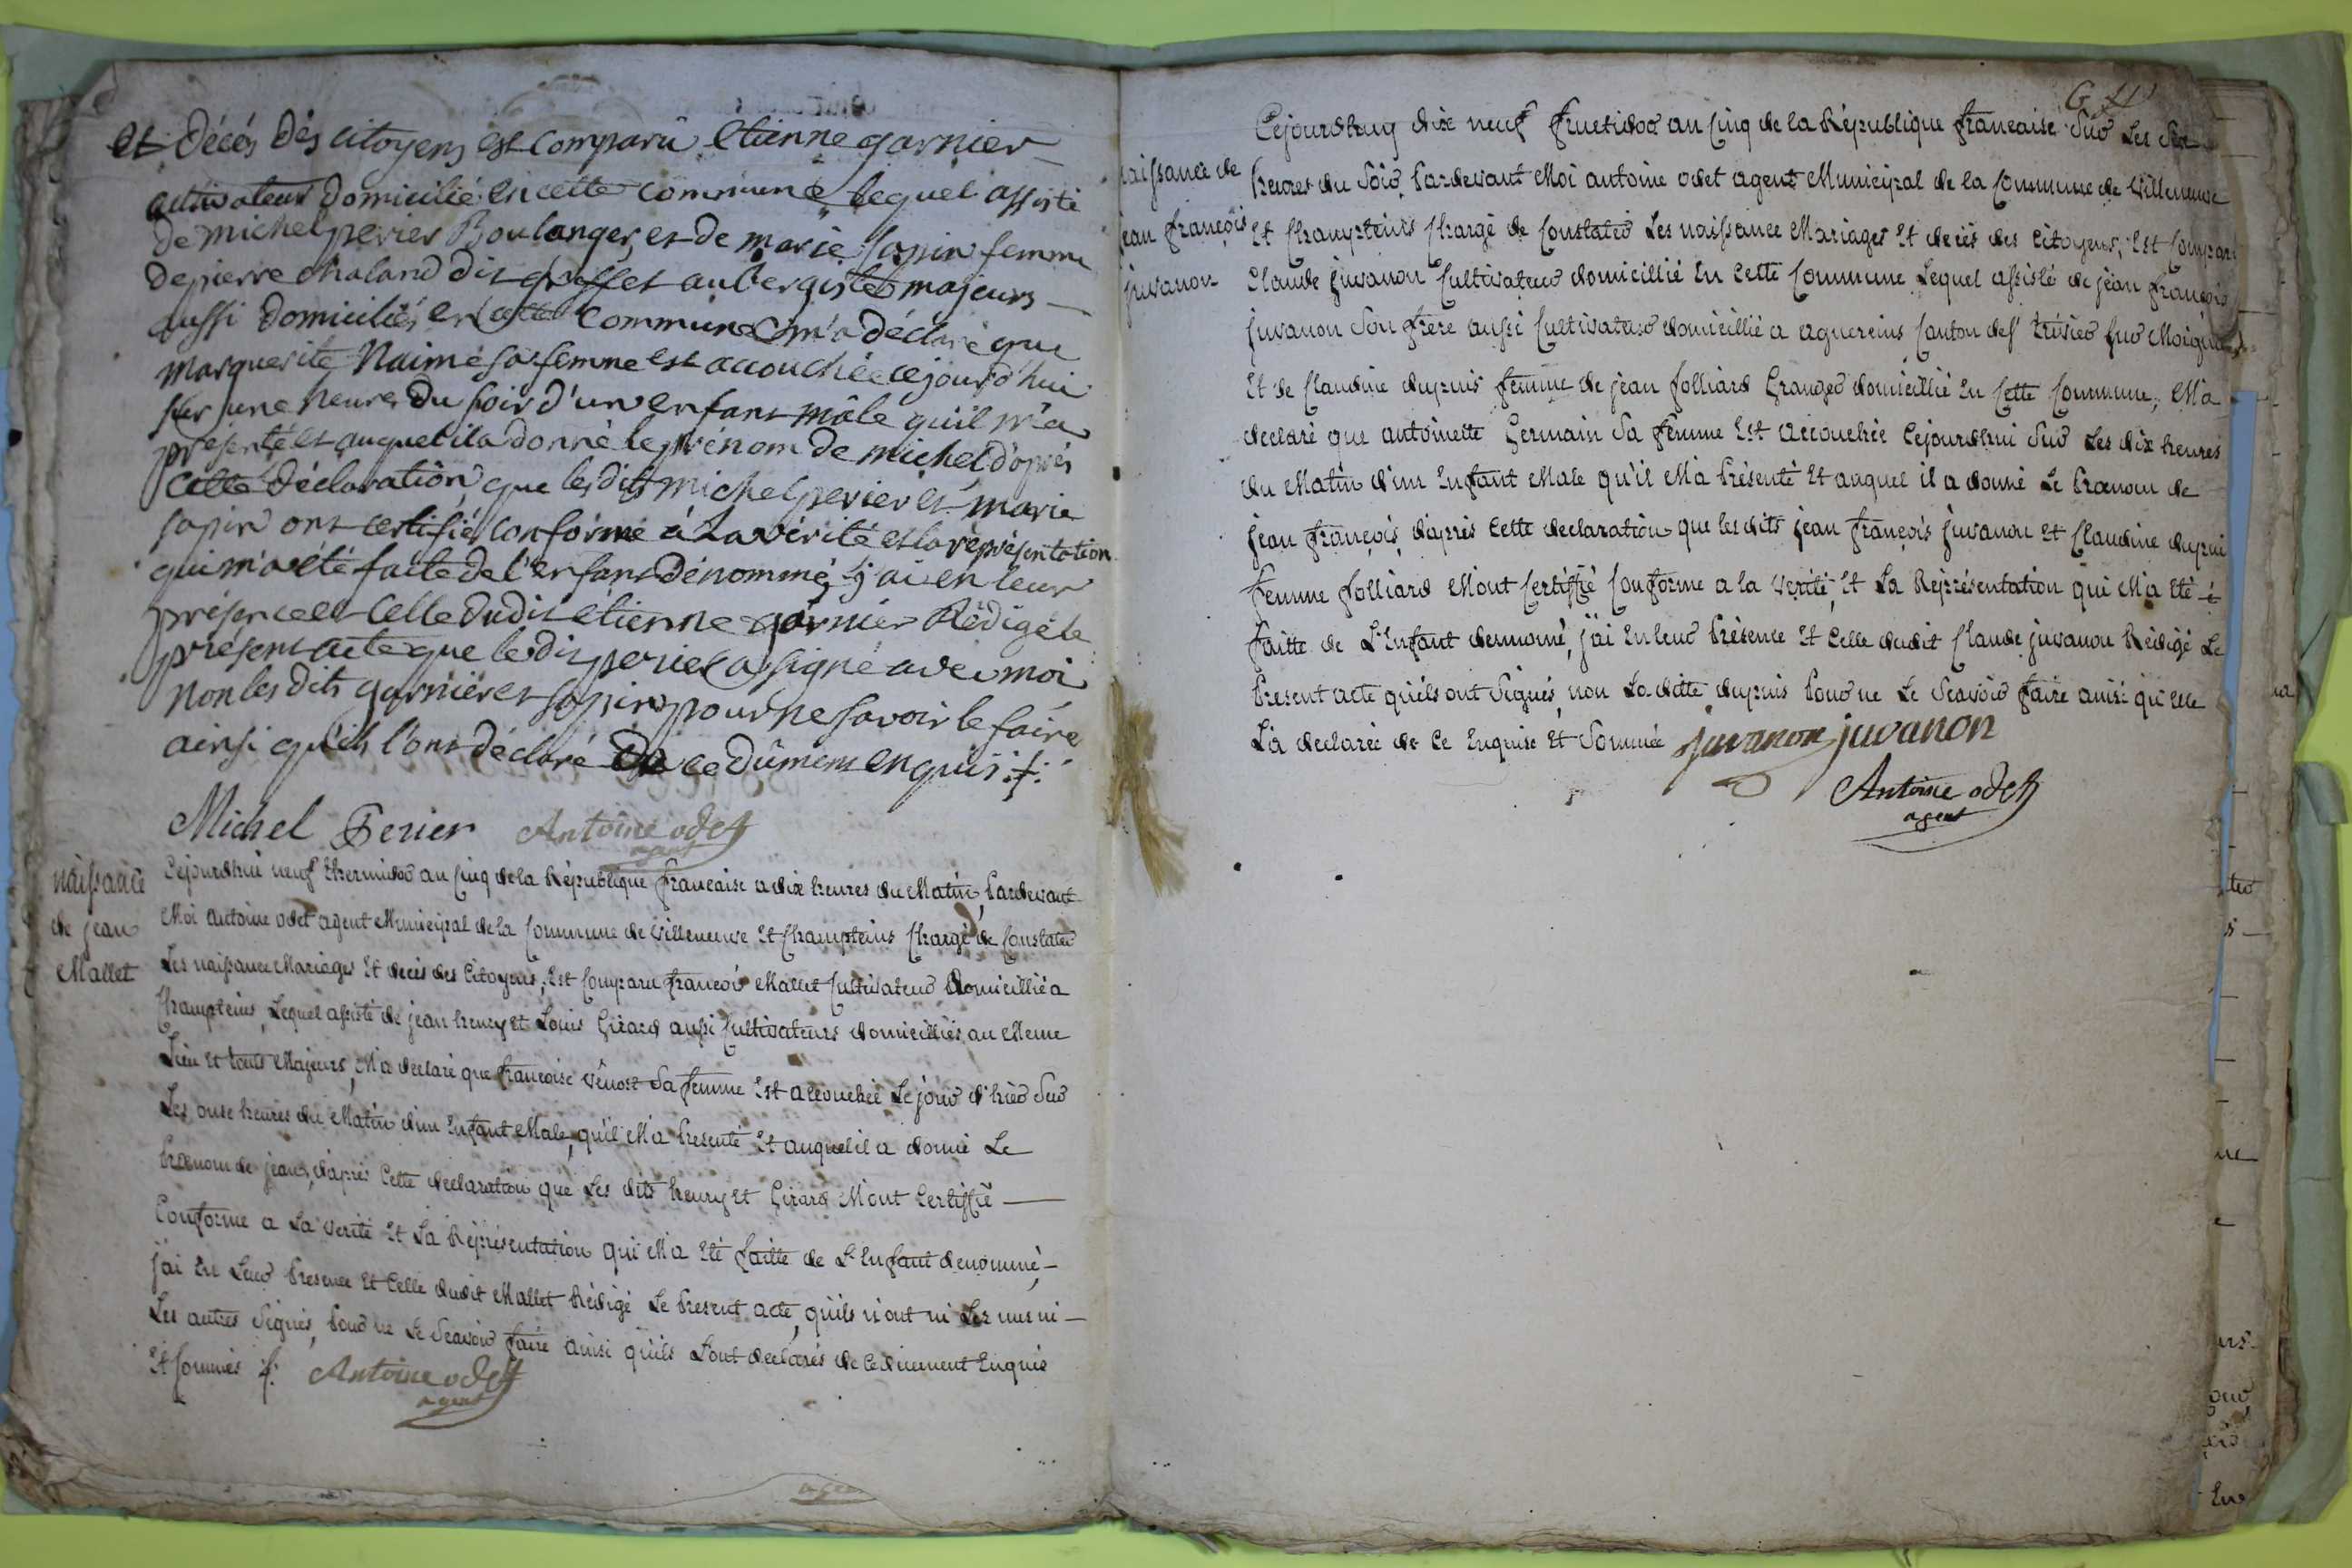 et décés dés citoyens est comparû etienne garnier
cultivateur domicilié en cette commune lequel assisté
de michel perier Boulanger, et de marie sapin femme
de pierre chaland dit aubergiste majeurs
aussi domiciliés en cette commune m'a déclaré que
marguerite Naime sa femme est accouchée cejourd'hui
sur une heure du soir d'un enfant mâle qu'il m'a
présenté et auquel il a donné le prénom de michel d'oprés
cette déclaration que les dits michel perier et marie
sapin ont certifié conforme à La vérité et la représentation
qui m'a été faite de l'enfant dénommé, j'ai en leur
présence et celle dudit etienne garnier Rédigé le
présent acte que le dit perier a signé avec moi
non les dits garnier et sapin pour ne savoir le faire
ainsi qu'ils l'ont déclaré de ce dûment enquis
Michel Perier Antoine odet
agent
naissance
de jean
Mallet
Cejourdhui neuf thermidor an cinq de la République francaise a dix heures du Matin, Pardevant
Moi antoine odet agent Municipal de la Commune de Villeneuve Et Champteins Chargé de Constater
Les naissance Mariages Et decés des Citoyens, Est Comparu francois Mallet Cultivateur Domicillié a
Champteins, Lequel assisté de jean henry et Louis Girard aussi Cultivateurs domicilliés au Meme
Lieu Et touts Majeurs, M'a declaré que francoise Vênost Sa femme Est accouchée Le jour d'hier Sur
Les onse heures du Matin d'un Enfant Male, qu'il M'a Presenté Et auquel il a donné Le
Prenom de jean, d'aprés Cette declaration que Les dits henry Et Girard M'ont Certiffié
Conforme a La Verité Et La Représentation qui M'a Eté faitte de L'Enfant denommé,
j'ai En Leur Presence Et Celle dudit Mallet Rédigé Le Present acte, qu'ils n'ont ni Les uns ni
Les autres Signés, Pour ne Le Scavoir faire ainsi qu'ils L'ont declarés de Ce duement Enquis
Et Sommés Antoine odet
agent
naissance de
jean françois
juvanon
Cejourdhuy dix neuf fructidor an Cinq de la République francaise Sur Les Six
heures du Soir, Pardevant Moi antoine odet agent Municipal de la Commune de Villeneuve
Et Champteins Chargé de Constater Les naissance Mariages Et decés des Citoyens, Est Comparu
Claude juvanon Cultivateur domicillié En Cette Commune Lequel assisté de jean françois
juvanon Son frere aussi Cultivateur domicillié a agnereins Canton de
Et de Claudine dupuis femme de jean folliard Granger domicillié En Cette Commune, M'a
declaré que antoinette Germain Sa femme Est accouchée Cejourdhui Sur Les dix heures
du Matin d'un Enfant Male qu'il M'a Présenté Et auquel il a donné Le Prenom de
jean françois, d'aprés Cette declaration que les dits jean françois juvanon Et Claudine dupuis
femme folliard M'ont Certiffié Conforme a la Verité, Et La Représentation qui M'a Eté
faitte de L'Enfant denommé, j'ai En leur Présence Et Celle dudit Claude juvanon Rédigé Le
Present acte qu'ils ont Signés, non Laditte dupuis Pour ne Le Scavoir faire ainsi qu'Elle
L'a declarée de Ce Enquise Et Sommée juvanon juvanon
Antoine odet
agent